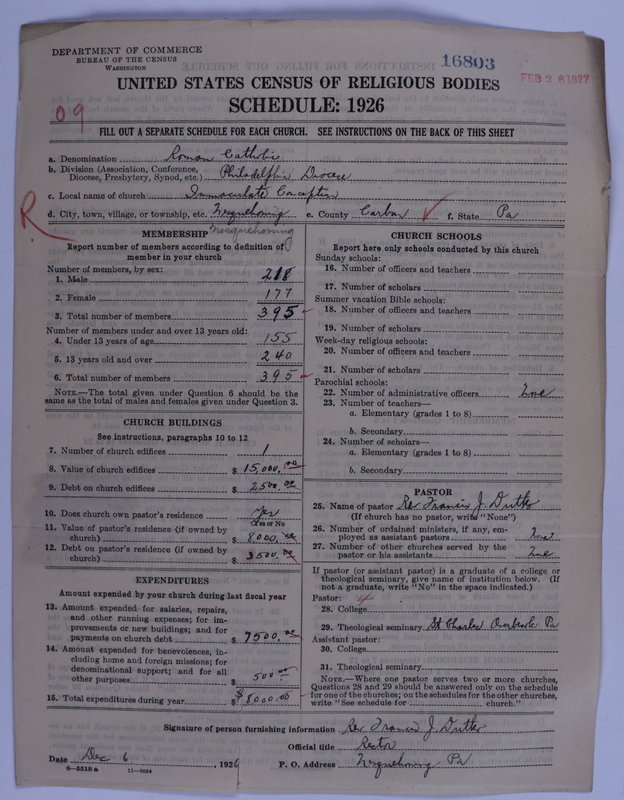 DEPARTMENT OF COMMERCE
BUREAU OF THE CENSUS
WASHINGTON
16803
FEB 2 8 1927
UNITED STATES CENSUS OF RELIGIOUS BODIES
SCHEDULE: 1926
09
FILL OUT A SEPARATE SCHEDULE FOR EACH CHURCH. SEE INSTRUCTIONS ON THE BACK OF THIS SHEET
a. Denomination Roman Catholic
b. Division (Association, Conference,
Diocese, Presbytery, Synod, etc.) Philadelphia Diocese
c. Local name of church Immaculate Conception
R
d. City, town, village, or township, etc. Nesquehoning e. County Carbon f. State Pa
Nesquehoning
MEMBERSHIP
Report number of members according to definition of
member in your church
Number of members, by sex:
1. Male 218
2. Female 177
3. Total number of members 395
Number of members under and over 13 years old:
4. Under 13 years of age 155
5. 13 years old and over 240
6. Total number of members 395
NOTE.—The total given under Question 6 should be
same as the total of males and females given under Question 3.
CHURCH BUILDINGS
See instructions, paragraphs 10 to 12
7. Number of church edifices 1
8. Value of church edifices $ 15,000.00
9. Debt on church edifices $ 2500.00
10. Does church own pastor's residence Yes
Yes or No
11. Value of pastor's residence (if owned by
church) $ 8000.00
12. Debt on pastor's residence (if owned by
church) $ 3500.00
EXPENDITURES
Amount expended by your church during last fiscal year
13. Amount expended for salaries, repairs,
and other running expenses; for im-
provements or new buildings; and for
payments on church debt $ 7500.00
14. Amount expended for benevolences, in-
cluding home and foreign missions; for
denominational support; and for all
other purposes $ 500.00
15. Total expenditures during year $ 8000.00
CHURCH SCHOOLS
Report here only schools conducted by this church
Sunday schools:
16. Number of officers and teachers
17. Number of scholars
Summer vacation Bible schools:
18. Number of officers and teachers
19. Number of scholars
Week-day religious schools:
20. Number of officers and teachers
21. Number of scholars
Parochial schools:
22. Number of administrative officers None
23. Number of teachers—
a. Elementary (grades 1 to 8)
b. Secondary
24. Number of scholars—
a. Elementary (grades 1 to 8)
b. Secondary
PASTOR
25. Name of pastor Rev. Francis J. Dutko
(If church has no pastor, write "None")
26. Number of ordained ministers, if any, em-
ployed as assistant pastors None
27. Number of other churches served by the
pastor or his assistants None
If pastor (or assistant pastor) is a graduate of a college or
theological seminary, give name of institution below. (If
not a graduate, write "No" in the space indicated.)
Pastor:
28. College
29. Theological seminary St Charles Overbrook Pa
Assistant pastor:
30. College
31. Theological seminary
NOTE.—Where one pastor serves two or more churches,
Questions 28 and 29 should be answered only on the schedule
for one of the churches; on the schedules for the other churches,
write "See schedule for church."
Signature of person furnishing information Rev. Francis J. Dutko
Official title Rector
Date Dec 6, 1926 P. O. Address Nesquehoning Pa
8—5518 a 11—9064